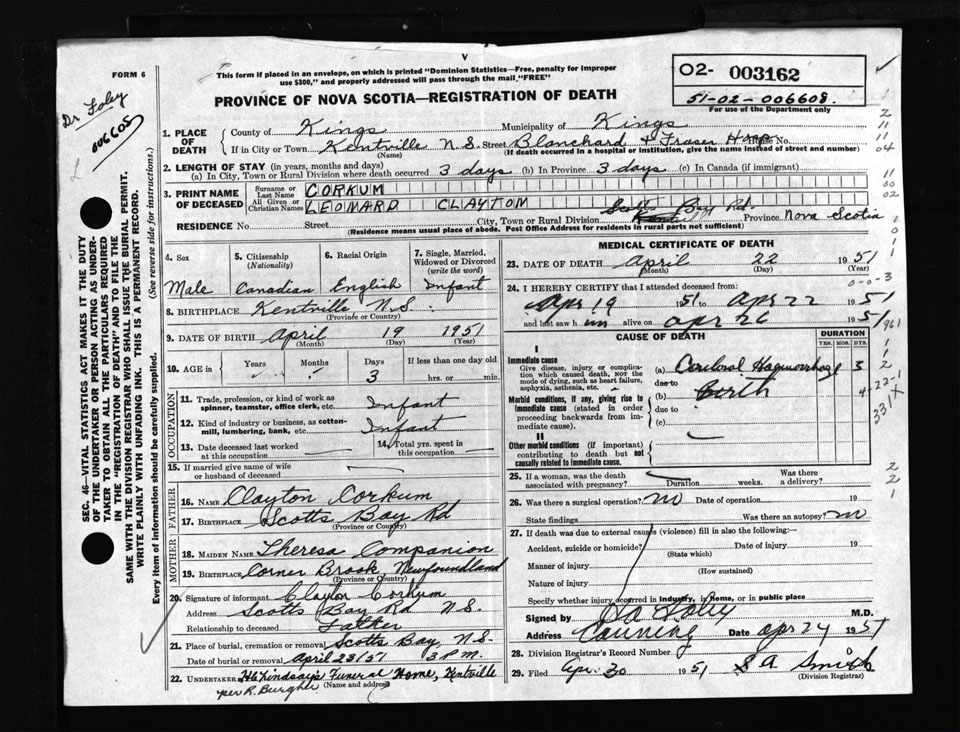 FORM 6
Dr Foley
006605
This form if placed in an envelope, on which is printed "Dominion Statistics—Free, penalty for improper
use $300," and properly addressed will pass through the mail "FREE"
PROVINCE OF NOVA SCOTIA—REGISTRATION OF DEATH
02- 003162
51-02-006608.
For use of the Department only
1. PLACE OF DEATH
County of Kings Municipality of Kings
If in City or Town Kentville N.S. Street Blanchard & Fraser Hosp House No.
(Name) (If death occurred in a hospital or institution, give the name instead of street and number)
2. LENGTH OF STAY (in years, months and days)
(a) In City, Town or Rural Division where death occurred 3 days (b) In Province 3 days (c) In Canada (if immigrant)
3. PRINT NAME OF DECEASED
Surname or Last Name CORKUM
All Given or Christian Names LEONARD CLAYTON
RESIDENCE No. Street City, Town or Rural Division Scotts Bay Rd. Province Nova Scotia
(Residence means usual place of abode. Post Office Address for residents in rural parts not sufficient)
4. Sex Male
5. Citizenship (Nationality) Canadian
6. Racial Origin English
7. Single, Married, Widowed or Divorced (write the word) Infant
8. BIRTHPLACE Kentville N.S.
(Province or Country)
9. DATE OF BIRTH April 19 1951
(Month) (Day) (Year)
10. AGE in Years Months Days 3 If less than one day old hrs. or min.
OCCUPATION
11. Trade, profession, or kind of work as spinner, teamster, office clerk, etc. Infant
12. Kind of industry or business, as cotton-mill, lumbering, bank, etc. Infant
13. Date deceased last worked at this occupation
14. Total yrs. spent in this occupation
15. If married give name of wife or husband of deceased
FATHER
16. Name Clayton Corkum
17. Birthplace Scotts Bay Rd
(Province or Country)
MOTHER
18. Maiden Name Theresa Companion
19. Birthplace Corner Brook, Newfoundland
(Province or Country)
20. Signature of informant Clayton Corkum
Address Scotts Bay Rd N.S.
Relationship to deceased Father
21. Place of burial, cremation or removal Scotts Bay, N.S.
Date of burial or removal April 23/51 3 P.M.
22. Undertaker Lindsay's Funeral Home, Kentville
(Name and address)
per R. Burgher
MEDICAL CERTIFICATE OF DEATH
23. DATE OF DEATH April 22 1951
(Month) (Day) (Year)
24. I HEREBY CERTIFY that I attended deceased from:
Apr 19 1951 to Apr 22 1951
and last saw him alive on apr 26 1951
CAUSE OF DEATH
DURATION
YRS. MOS. DYS.
I
Immediate cause
Give disease, injury or complication which caused death, not the mode of dying, such as heart failure, asphyxia, asthenia, etc.
(a) Cerebral Hagmorrhage 3
due to
Morbid conditions, if any, giving rise to immediate cause (stated in order proceeding backwards from immediate cause).
(b) birth 4
due to
(c)
II
Other morbid conditions (if important) contributing to death but not causally related to immediate cause.
25. If a woman, was the death associated with pregnancy? Duration weeks. Was there a delivery?
26. Was there a surgical operation? no Date of operation 19
State findings Was there an autopsy? no
27. If death was due to external causes (violence) fill in also the following:—
Accident, suicide or homicide? Date of injury 19
(State which)
Manner of injury
(How sustained)
Nature of injury
Specify whether injury occurred in industry, in home, or in public place
Signed by Foley M.D.
Address Canning Date apr 24 1951
28. Division Registrar's Record Number
29. Filed apr. 30 1951 S A Smith
(Division Registrar)
SEC. 46—VITAL STATISTICS ACT MAKES IT THE DUTY
OF THE UNDERTAKER OR PERSON ACTING AS UNDER-
TAKER TO OBTAIN ALL THE PARTICULARS REQUIRED
IN THE "REGISTRATION OF DEATH" AND TO FILE THE
SAME WITH THE DIVISION REGISTRAR WHO SHALL ISSUE THE BURIAL PERMIT.
WRITE PLAINLY WITH UNFADING INK. THIS IS A PERMANENT RECORD.
Every item of information should be carefully supplied. (See reverse side for instructions.)